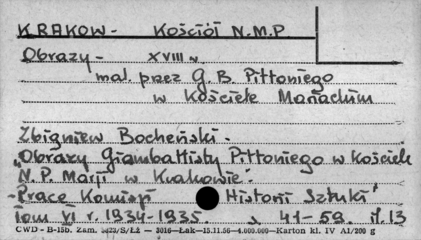 KRAKOW - Kościół N.M.P.
Obrazy - XVIII w.
mal. przez G. B. Pittoniego
w Kościele Mariackim
Zbigniew Bocheński -
"Obrazy Giambattisty Pittoniego w Kościele
N.P. Marji w Krakowie"
- Prace Komisji Historii Sztuki"
tom VI r. 1934-1935. s 41-59. il. 13
CWD - B-15b. Zam. S/Łż — 3016—Łak—15.11.56—4.000.000—Karton kl. IV A1/200 g